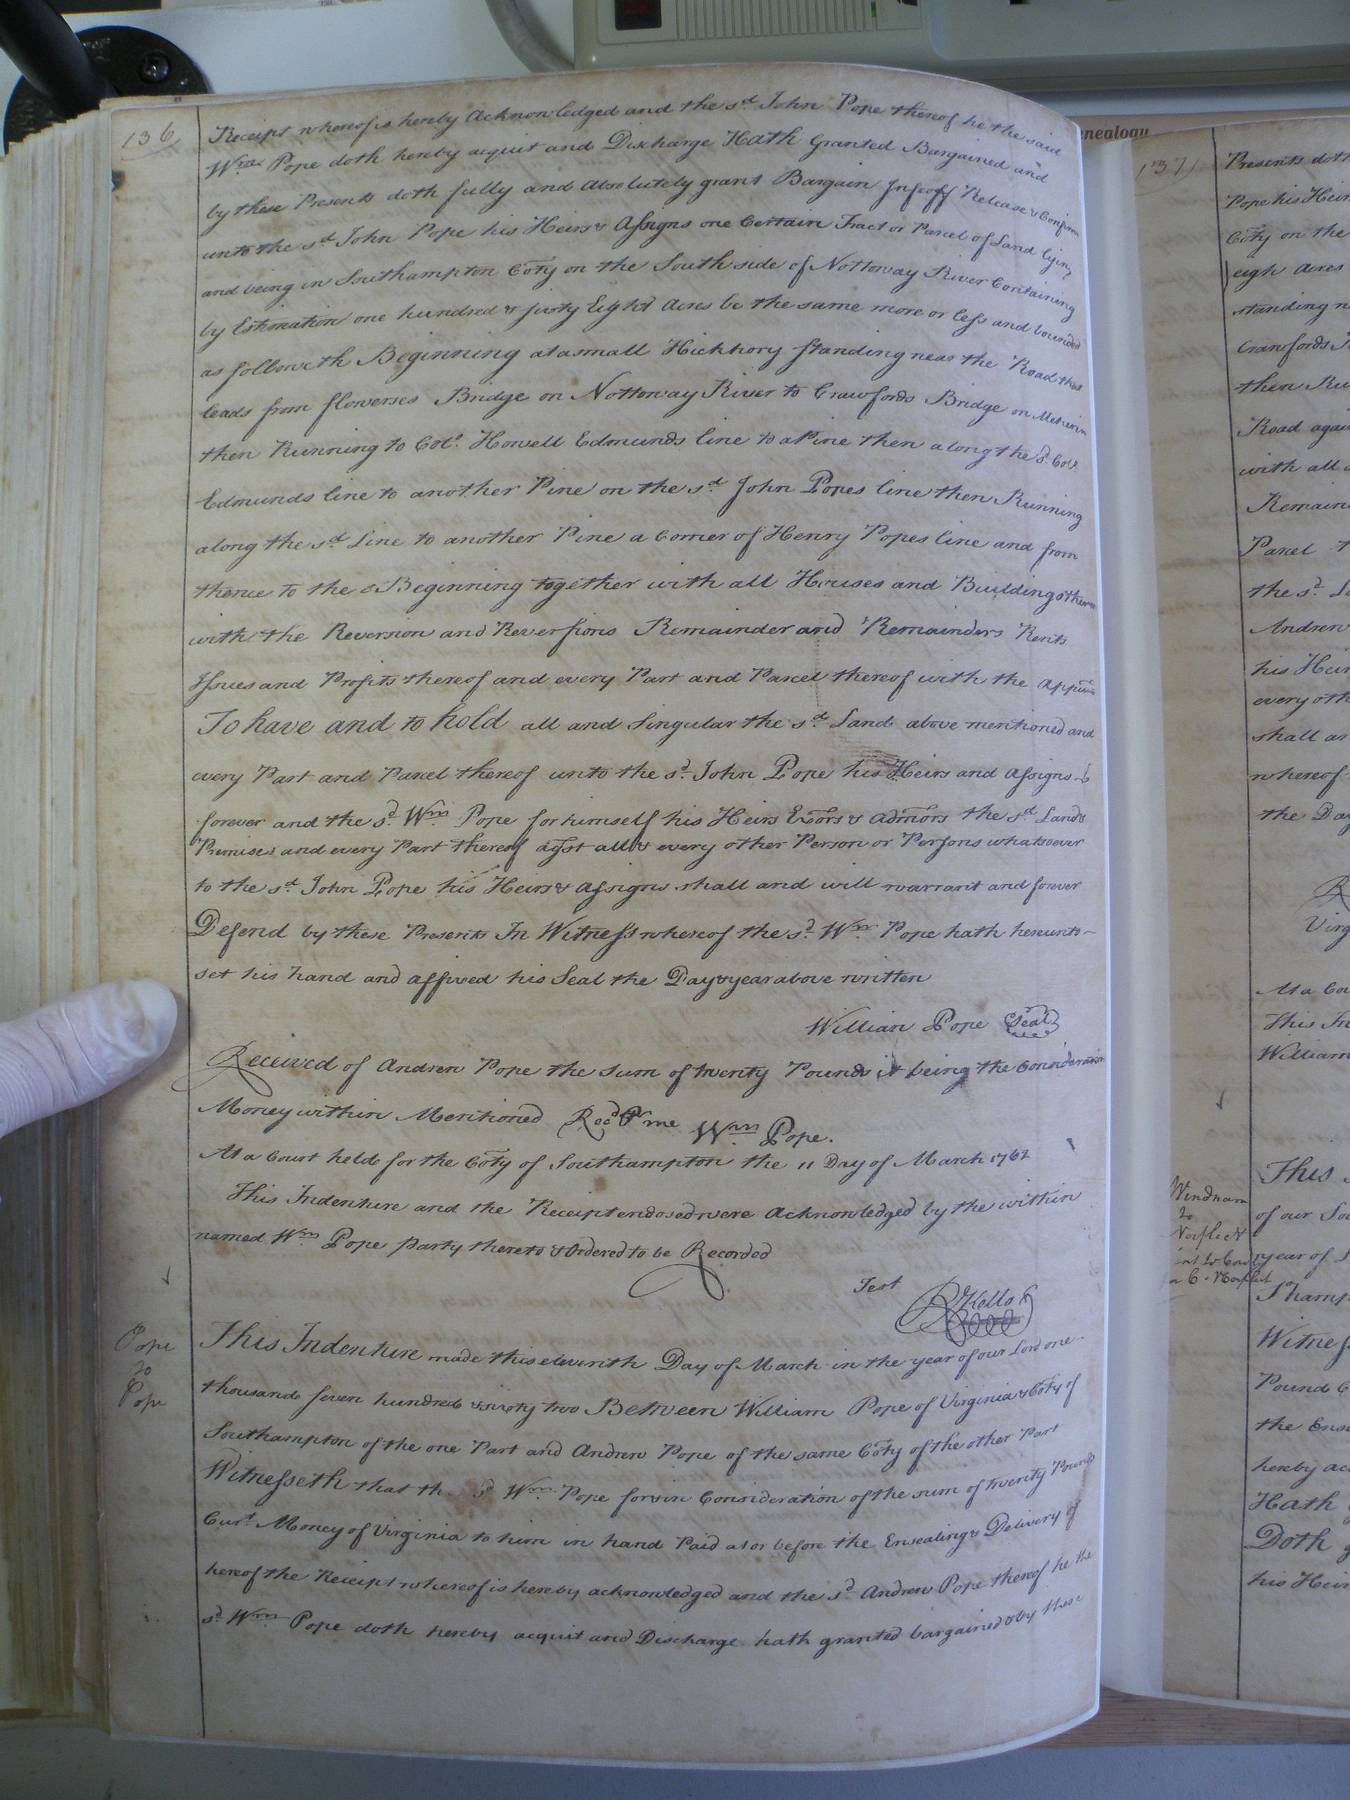 136
Receipt whereof is hereby Acknowledged and the sd John Pope thereof he the said
Wm Pope doth hereby acquit and Discharge Hath Granted Bargained and
by these Presents doth fully and Absolutely grant Bargain Infeoff Release & Confirm
unto the sd John Pope his Heirs & Assigns one Certain Tract or Parcel of Land lying
and being in Southampton Coty on the South side of Nottoway River Containing
by Estimation one hundred & sixty Eight Acres be the same more or less and bounded
as followeth Beginning at a small Hickhory standing near the Road that
leads from flowerses Bridge on Nottoway River to Crawfords Bridge on Meherin
then Running to Colo. Howell Edmunds line to a Pine then along the sd. Colo.
Edmunds line to another Pine on the sd John Popes line then Running
along the sd Line to another Pine a Corner of Henry Popes line and from
thence to the Beginning together with all Houses and Buildings thereon
with the Reversion and Reversions Remainder and Remainders Rents
Issues and Profits thereof and every Part and Parcel thereof with the
To have and to hold all and Singular the sd Land above mentioned and
every Part and Parcel thereof unto the sd. John Pope his Heirs and Assigns
forever and the sd. Wm Pope for himself his Heirs Exors & admors the sd Land &
Premises and every Part thereof agst all & every other Person or Persons whatsoever
to the sd John Pope his Heirs & Assigns shall and will warrant and forever
Defend by these Presents In Witness whereof the sd. Wm Pope hath hereunto
set his hand and affixed his Seal the Day & year above written
William Pope Seal
Received of Andrew Pope the sum of twenty Pounds it being the Consideration
Money within Mentioned Recd P me Wm Pope.
At a Court held for the Coty of Southampton the 11 Day of March 1762
This Indenture and the Receipt endosed were Acknowledged by the within
named Wm Pope party thereto & Ordered to be Recorded
Test
Rd Kello
Pope
to
Pope
This Indenture made this eleventh Day of March in the year of our Lord one
thousand seven hundred & sixty two Between William Pope of Virginia & Coty of
Southampton of the one Part and Andrew Pope of the same Coty of the other Part
Witnesseth that the sd Wm. Pope for & in Consideration of the sum of twenty Pounds
Curt. Money of Virginia to him in hand Paid at or before the Ensealing & Delivery of
hereof the Receipt whereof is hereby acknowledged and the sd. Andrew Pope thereof he the
sd. Wm Pope doth hereby acquit and Discharge hath granted bargained & by these
enealogy
137
Presents doth
Pope his Heir
Coty on the
eigh Acres
standing n
Crawfords
then Ru
Road agai
with all
Remain
Parcel
the sd.
Andrew
his Heir
every oth
shall
whereof
the Day
Virg
At a Cou
This In
William
Windham
to
This
of our
year of
Witness
Pound
the Ense
hereby ac
Hath
Doth
his Heir